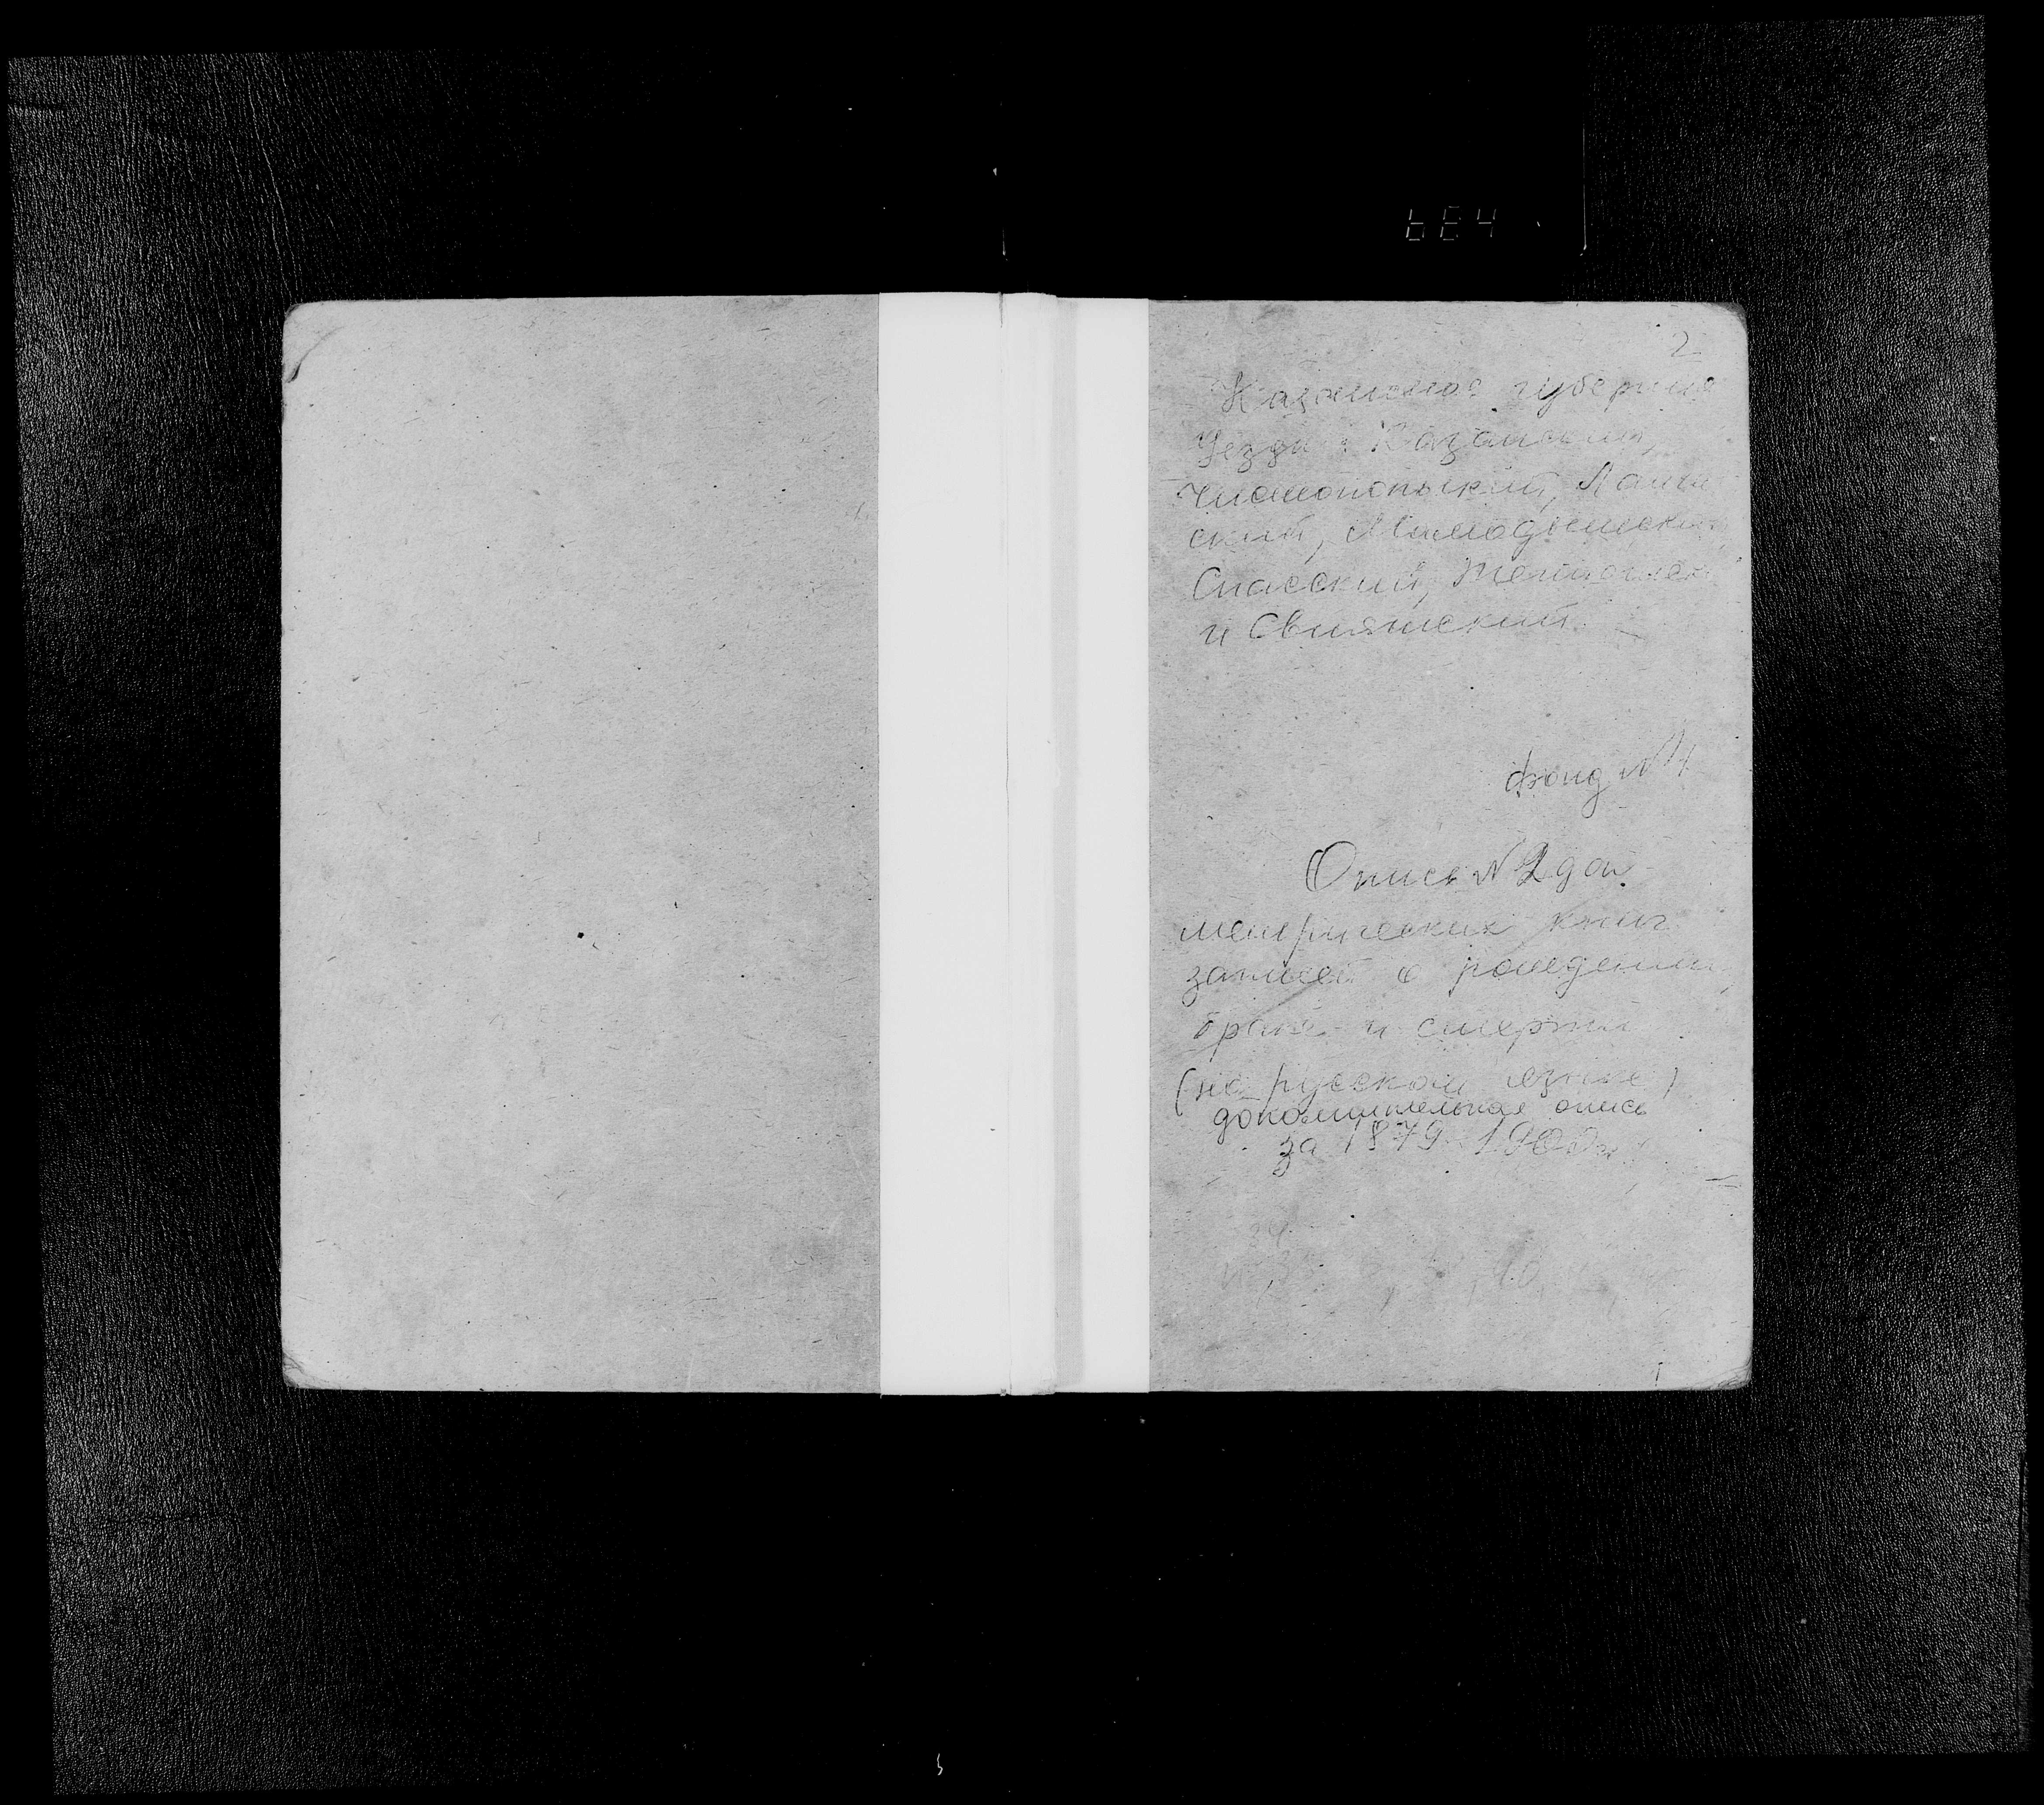 684
2
Казанская губерния
Уезды: Казанский,
Чистопольский, Лаише
ский, Мамадышский,
Спасский, Тетюшский
и Свияжский.
Фонд №4
Опись № 2 доп.
метрических книг
записей о рождении,
браке и смерти
(на русском языке)
дополнительная опись
за 1879